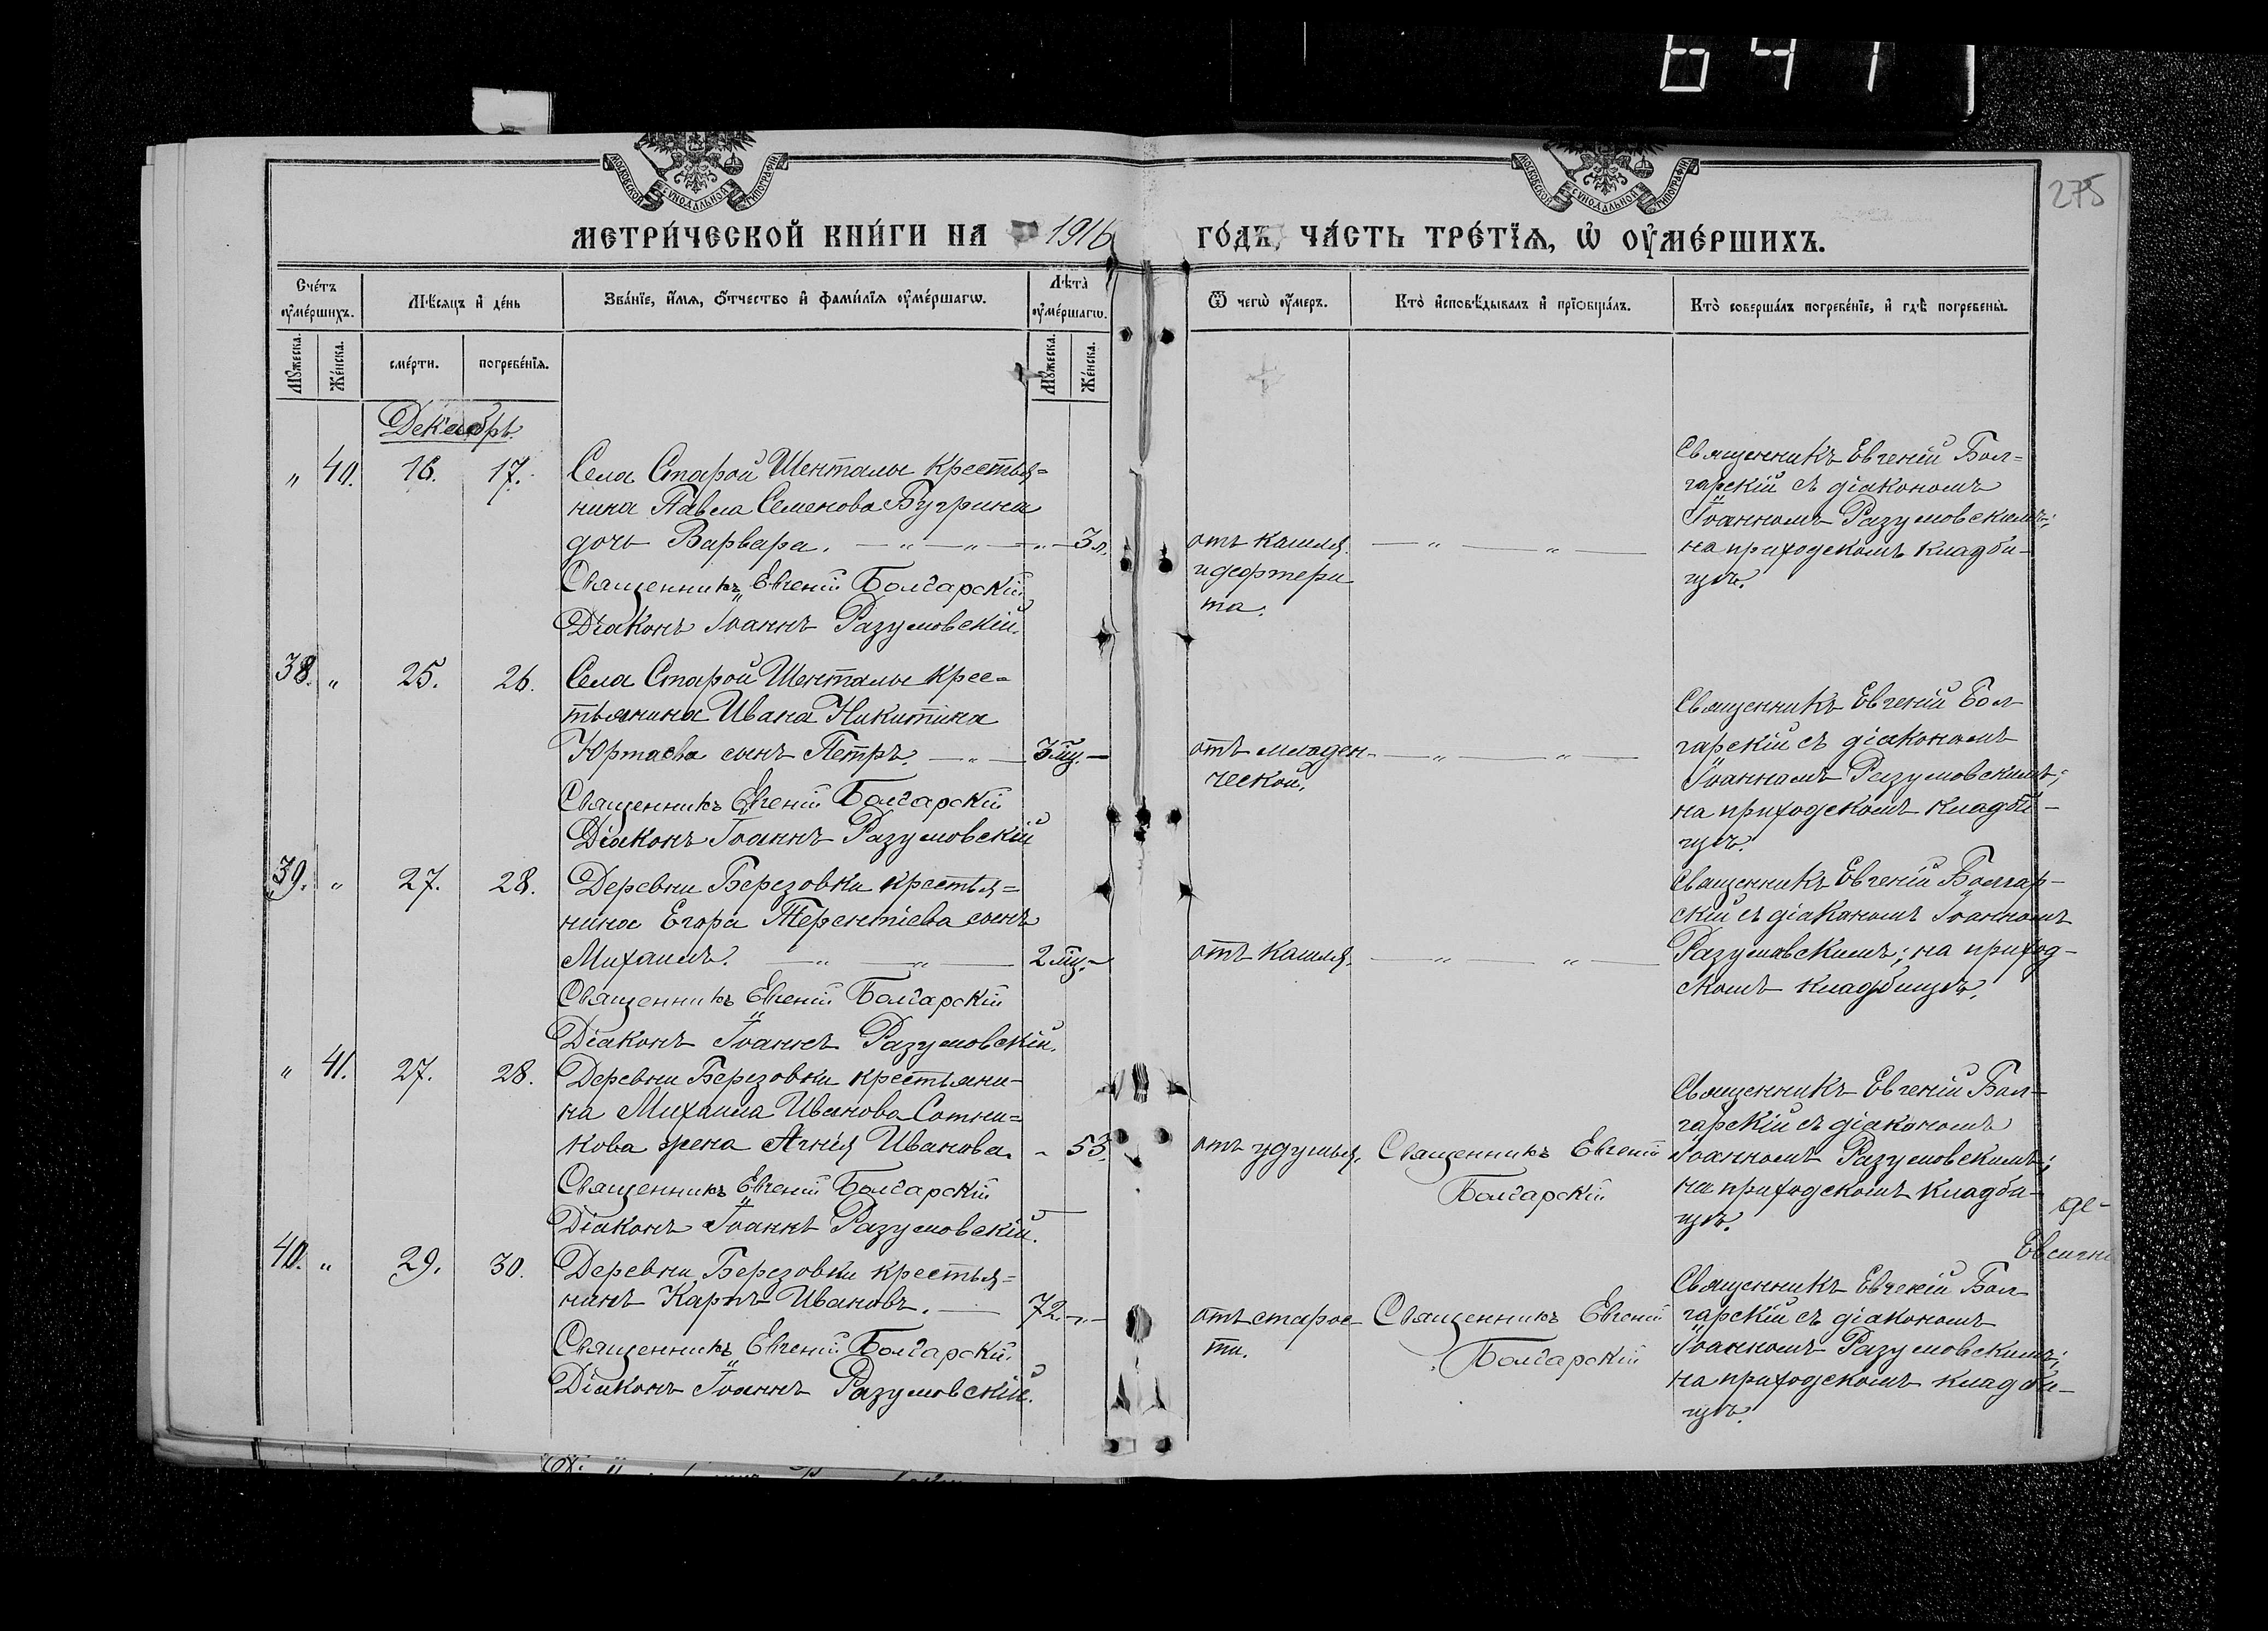 641
275
МОСКОВСКОЙ СѴНОДАЛЬНОЙ ТИПОГРАФІИ
МОСКОВСКОЙ СѴНОДАЛЬНОЙ ТИПОГРАФІИ
МЕТРИ́ЧЕСКОЙ КНИ́ГИ НА 1916 ГО́ДЪ, ЧА́СТЬ ТРЕ́ТЇѦ, Ѡ҆ ОУ҆МЕ́РШИХЪ.
Сче́тъ оу҆ме́ршихъ.
Мѣ́сяцъ и҆ де́нь
Зва́нїе, и҆́мѧ, ѻ҆́тчество и҆ фамѝлїѧ оу҆ме́ршагѡ.
Лѣ́та оу҆ме́ршагѡ.
Ѿ чегѡ̀ оу҆́меръ.
Кто̀ и҆сповѣ́дывалъ и҆ прїѻбща́лъ.
Кто̀ соверша́лъ погребе́нїе, и҆ гдѣ̀ погребены̀.
Мꙋ́жеска.
Же́нска.
сме́рти.
погребе́нїѧ.
Мꙋ́жеска.
Же́нска.
Декабрь.
" 40. 16. 17. Села Старой Шенталы крестья=
нина Павла Семенова Бугрина
дочь Варвара. — " — " — " — 3 л.
Священникъ Евгеній Болгарскій
Діаконъ Іоаннъ Разумовскій.
отъ кашля
и дефтери
та.
— " — " —
Священникъ Евгеній Бол=
гарскій съ діакономъ
Іоанномъ Разумовскимъ;
на приходскомъ кладби-
щѣ.
38. " 25. 26. Села Старой Шенталы крес=
тьянина Ивана Никитина
Юртаева сынъ Петръ. — " — 3 мц. —
Священникъ Евгеній Болгарскій
Діаконъ Іоаннъ Разумовскій
отъ младен-
ческой.
— " — " —
Священникъ Евгеній Бол
гарскій съ діакономъ
Іоанномъ Разумовскимъ;
на приходскомъ кладби-
щѣ.
39. " 27. 28. Деревни Березовки крестья=
нина Егора Терентіева сынъ
Михаилъ. — " — " — 2 мц. —
Священникъ Евгеній Болгарскій
Діаконъ Іоаннъ Разумовскій.
отъ кашля.
— " — " —
Священникъ Евгеній Болгар-
скій съ діакономъ Іоанномъ
Разумовскимъ; на приход-
скомъ кладбищѣ.
" 41. 27. 28. Деревни Березовки крестьяни-
на Михаила Иванова Сотни=
кова жена Агнія Иванова. - 53.
Священникъ Евгеній Болгарскій
Діаконъ Іоаннъ Разумовскій.
отъ удушья.
Священникъ Евгеній
Болгарскій
Священникъ Евгеній Бол-
гарскій съ діакономъ
Іоанномъ Разумовскимъ;
на приходскомъ кладби-
щѣ.
де-
40. " 29. 30. Деревни Березовки крестья=
нинъ Карпъ Ивановъ. — 72. - " -
Священникъ Евгеній Болгарскій.
Діаконъ Іоаннъ Разумовскій.
отъ старос-
ти.
Священникъ Евгеній
Болгарскій
Священникъ Евгеній Бол
гарскій съ діакономъ
Іоанномъ Разумовскимъ;
на приходскомъ кладби-
щѣ.